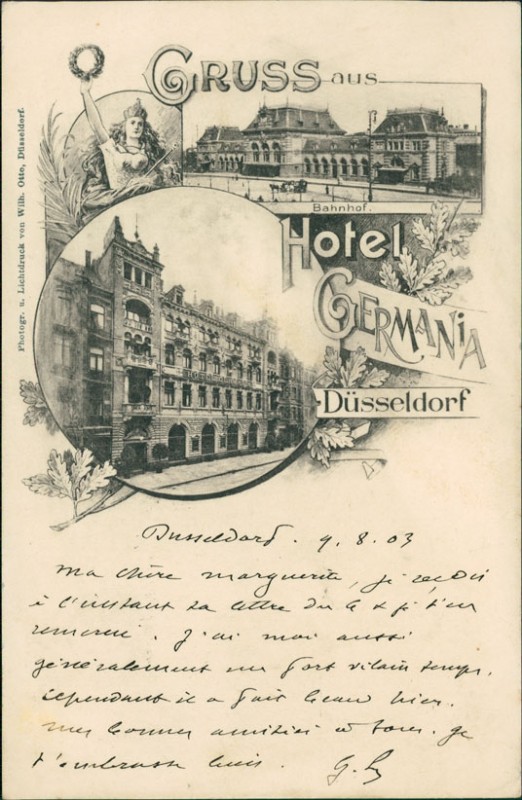 GRUSS aus
Bahnhof.
Hotel
GERMANIA
Düsseldorf
Photogr. u. Lichtdruck von Wilh. Otto, Düsseldorf.
Dusseldorf. 9.8.03
Ma chère Marguerite, je reçois
à l'instant ta lettre du 6 & je t'en
remercie. J'ai moi aussi
généralement un fort vilain temps.
Cependant il a fait beau hier.
Mes bonnes amitiés à tous. Je
t'embrasse bien. G.